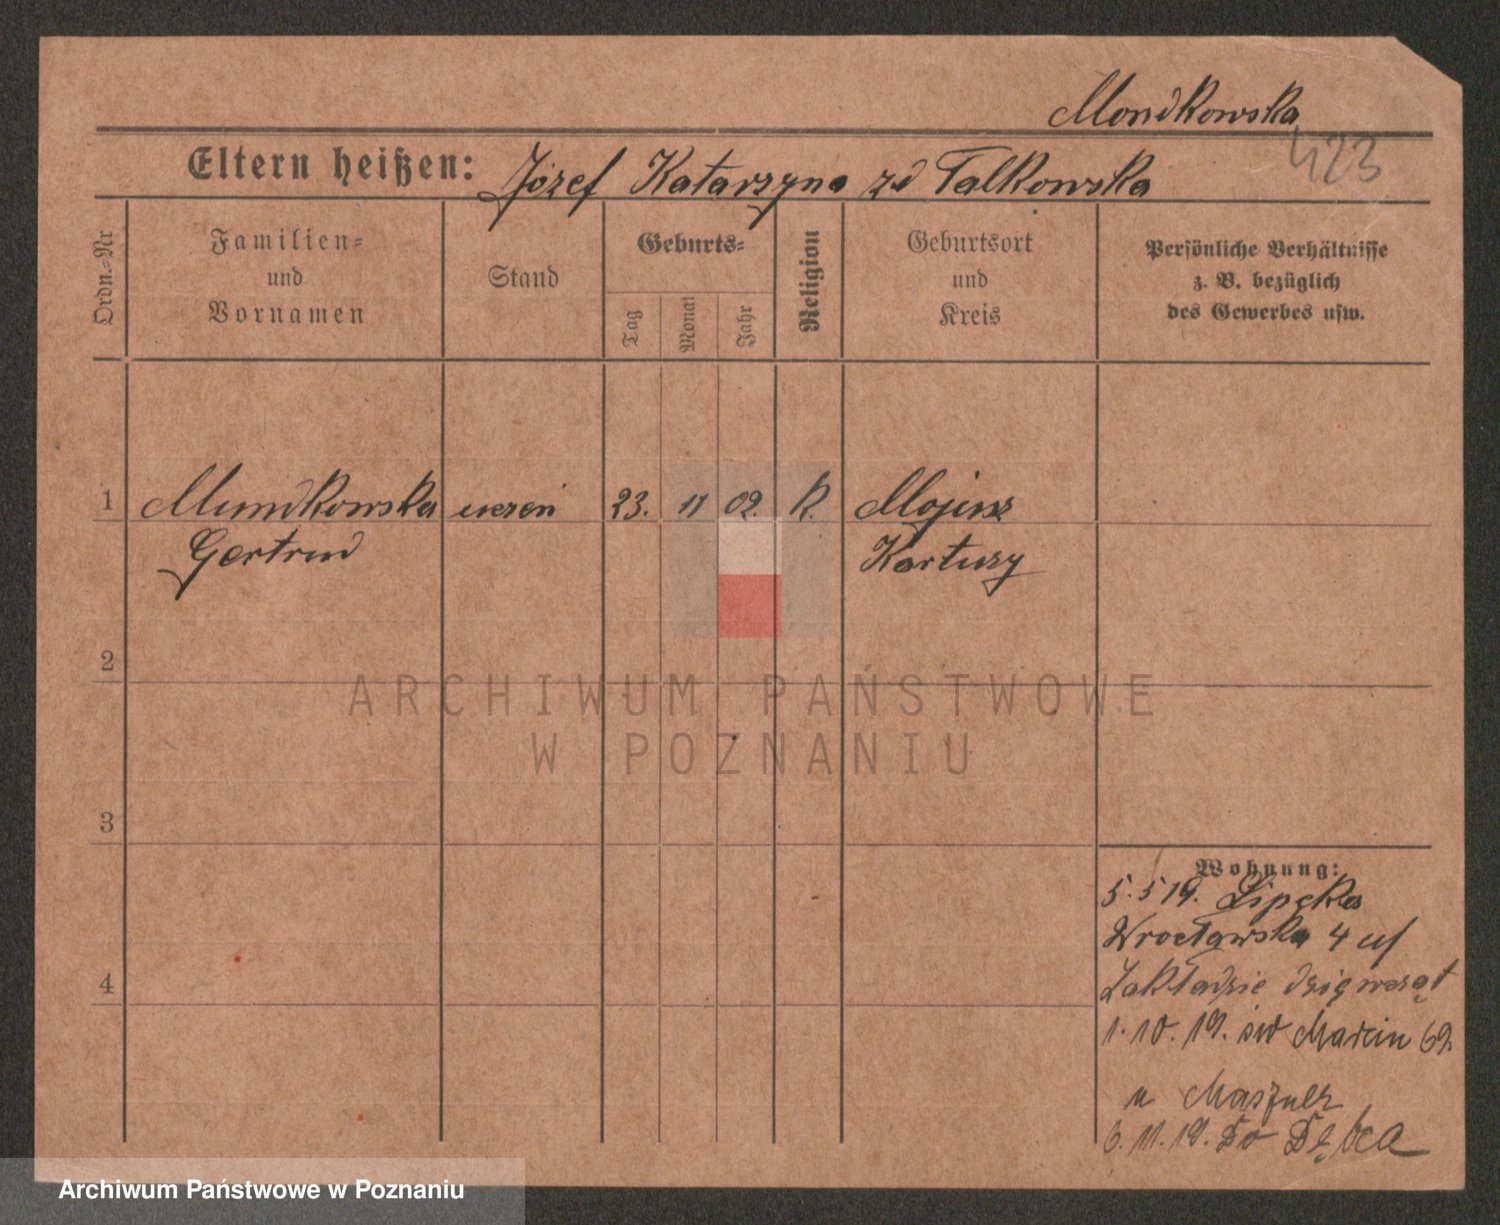 Mondkowska
423
Eltern heißen: Józef Katarzyna zd Talkowska
Ordn.-Nr
Familien- und Vornamen
Stand
Geburts-
Tag
Monat
Jahr
Religion
Geburtsort und Kreis
Persönliche Verhältnisse
z. B. bezüglich
des Gewerbes usw.
1 Mundkowska uczeń 23. 11 02 K. Mojusz
Gertrud Kartuzy
2
ARCHIWUM PAŃSTWOWE
W POZNANIU
3
Wohnung:
5.5 19.
Wrocławska 4 w
Zakładzie dziewcząt
4
1.10.19. św Marcin 69
u
6.11.19. Do Dębca
Archiwum Państwowe w Poznaniu